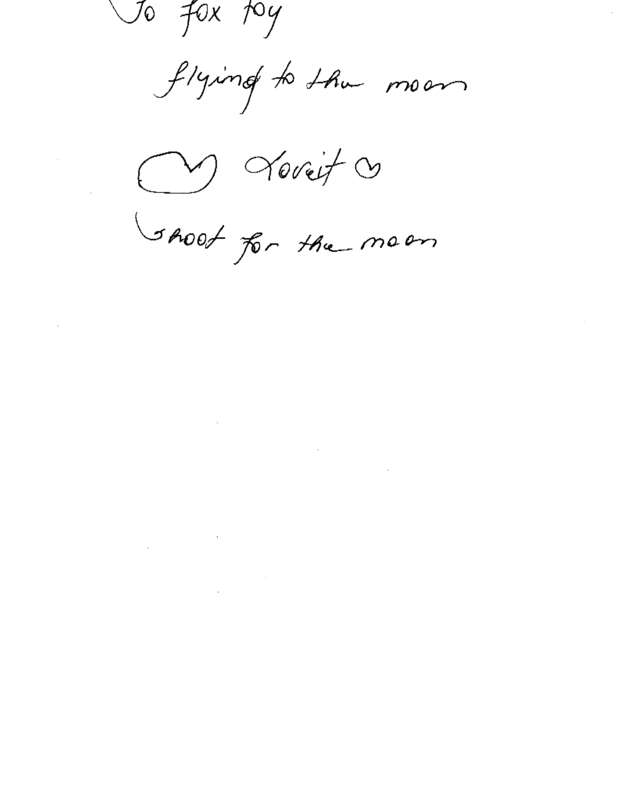 To fox toy
flying to the moon
Loveit
shoot for the moon